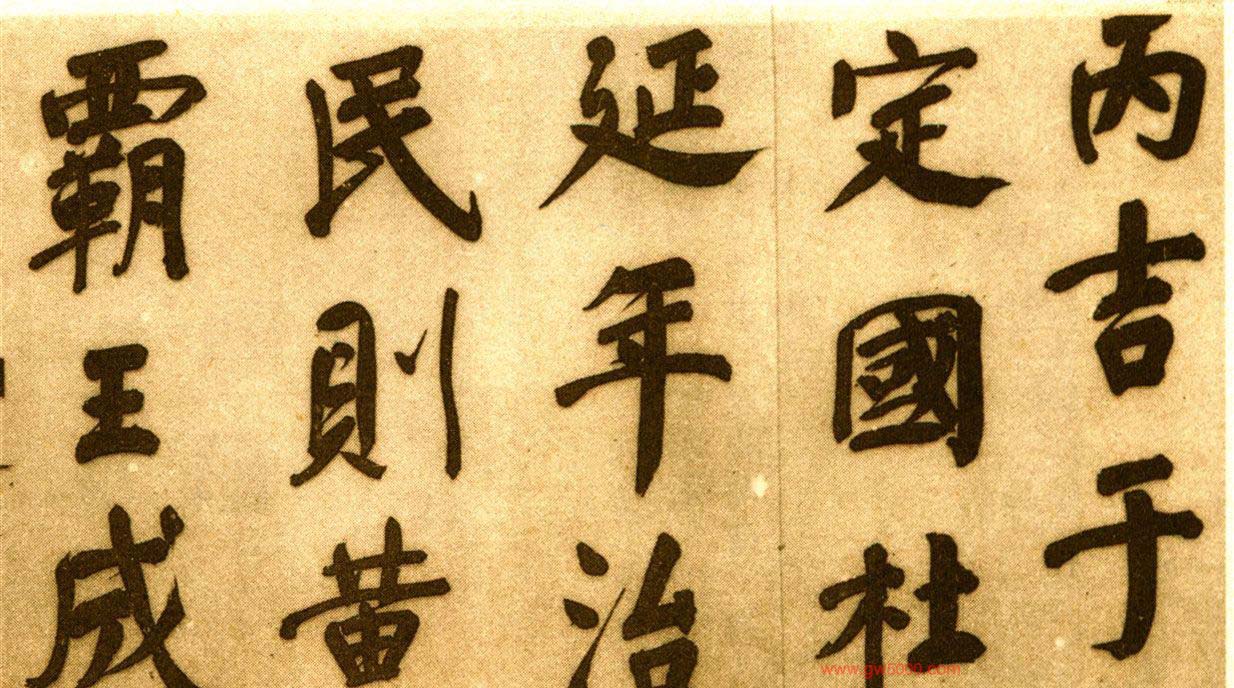 丙吉于
定國杜
延年治
民則黄
霸王成
www.gw5000.com